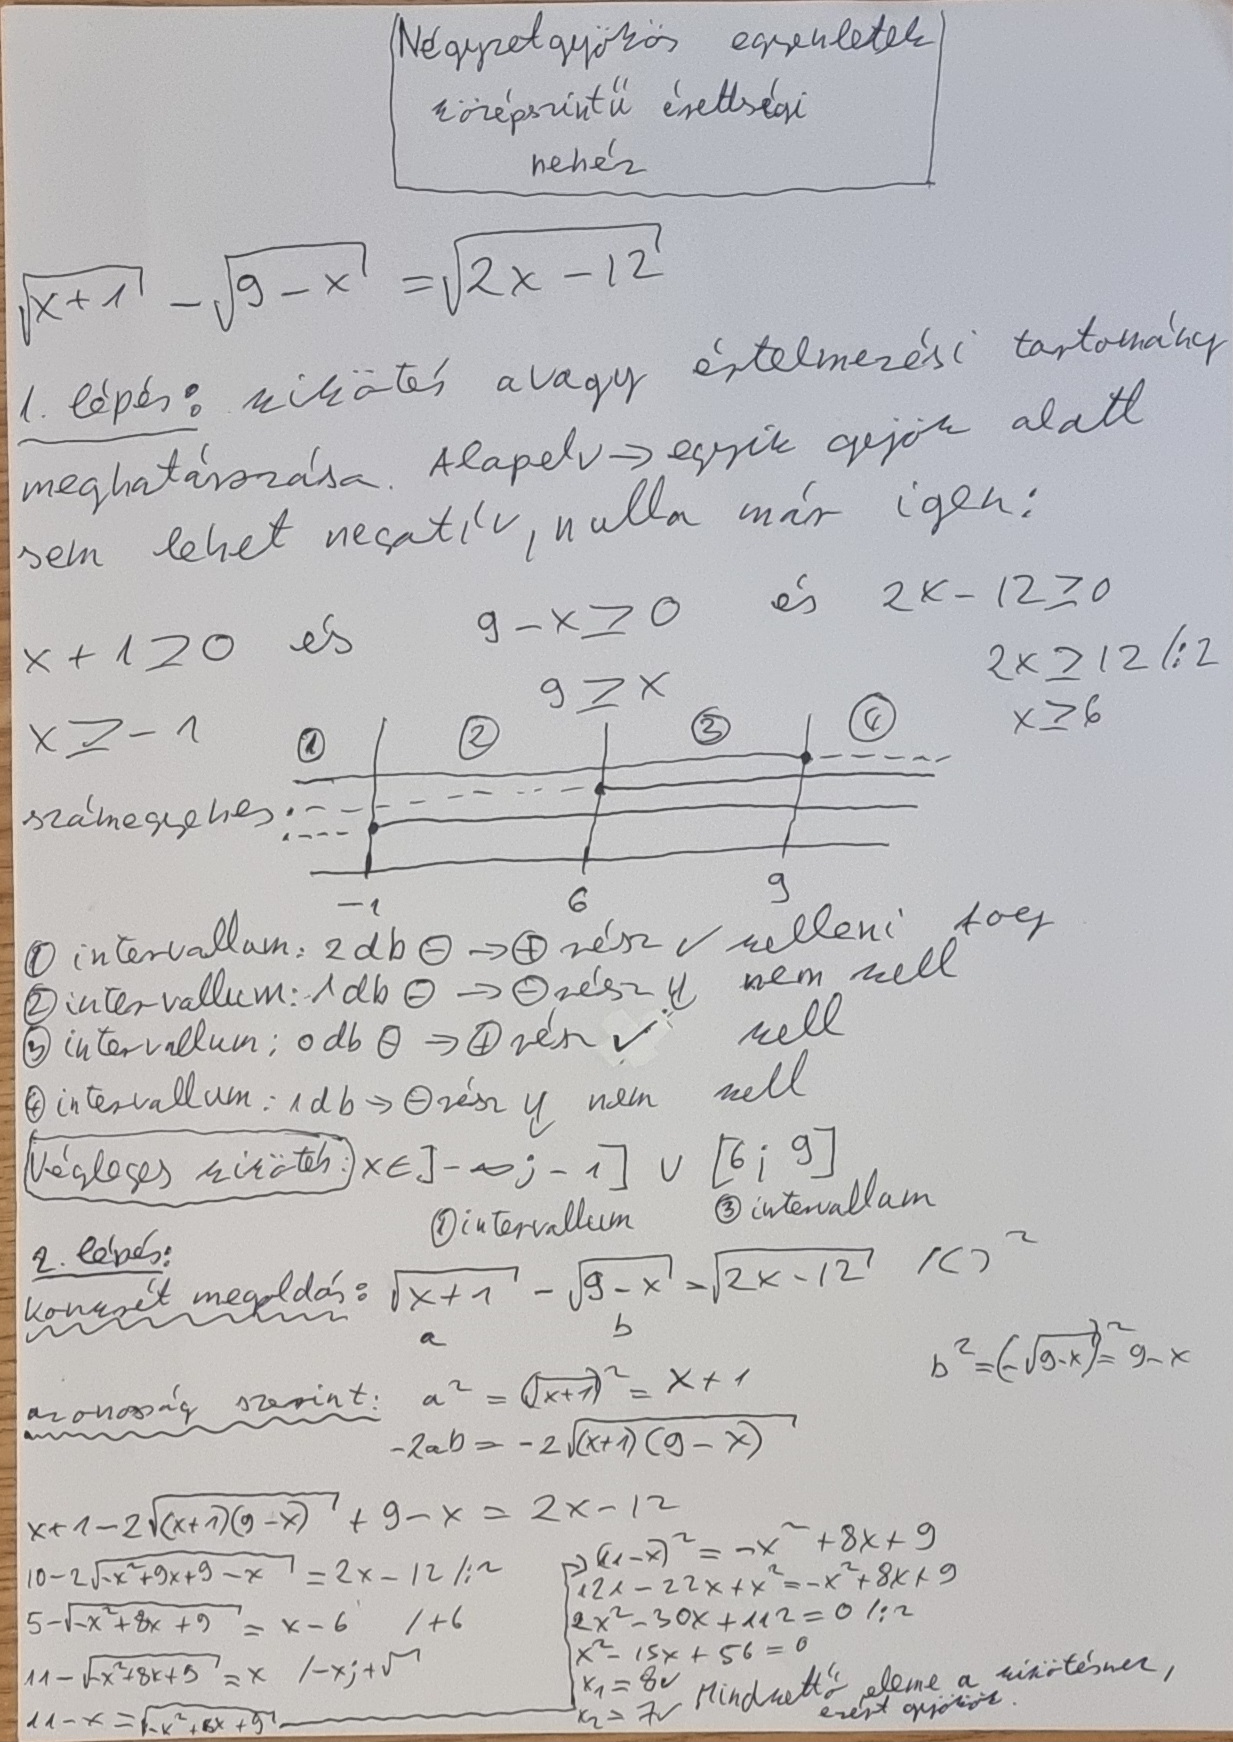 Négyzetgyökös egyenletek
középszintű érettségi
nehéz
√(x+1) - √(9-x) = √(2x-12)
1. lépés: kikötés avagy értelmezési tartomány
meghatározása. Alapelv → egyik gyök alatt
sem lehet negatív, nulla már igen:
x+1≥0 és 9-x≥0 és 2x-12≥0
9≥x 2x≥12 /:2
x≥-1 x≥6
① ② ③ ④
számegyenes:
-1 6 9
① intervallum: 2 db ⊖ → ⊕ rész ✓ kelleni fog
② intervallum: 1 db ⊖ → ⊖ rész nem kell
③ intervallum: 0 db ⊖ → ⊕ rész ✓ kell
④ intervallum: 1 db → ⊖ rész nem kell
Végleges kikötés: x∈]-∞; -1] ∪ [6; 9]
① intervallum ③ intervallum
2. lépés:
konkrét megoldás: √(x+1) - √(9-x) = √(2x-12) /( )²
a b
b² = (-√(9-x))² = 9-x
azonosság szerint: a² = (√(x+1))² = x+1
-2ab = -2√((x+1)(9-x))
x+1-2√((x+1)(9-x)) + 9-x = 2x-12
10-2√(-x²+9x+9-x) = 2x-12 /:2
5-√(-x²+8x+9) = x-6 /+6
11-√(-x²+8x+9) = x /-x; +√
11-x = √(-x²+8x+9)
→ (11-x)² = -x²+8x+9
121-22x+x² = -x²+8x+9
2x²-30x+112=0 /:2
x²-15x+56=0
x₁=8✓
x₂=7✓ Mindkettő eleme a kikötésnek,
ezért gyökök.